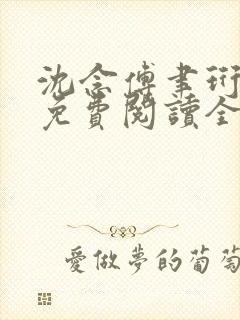 沈念傅書珩
免費閱讀全
愛做夢的葡萄